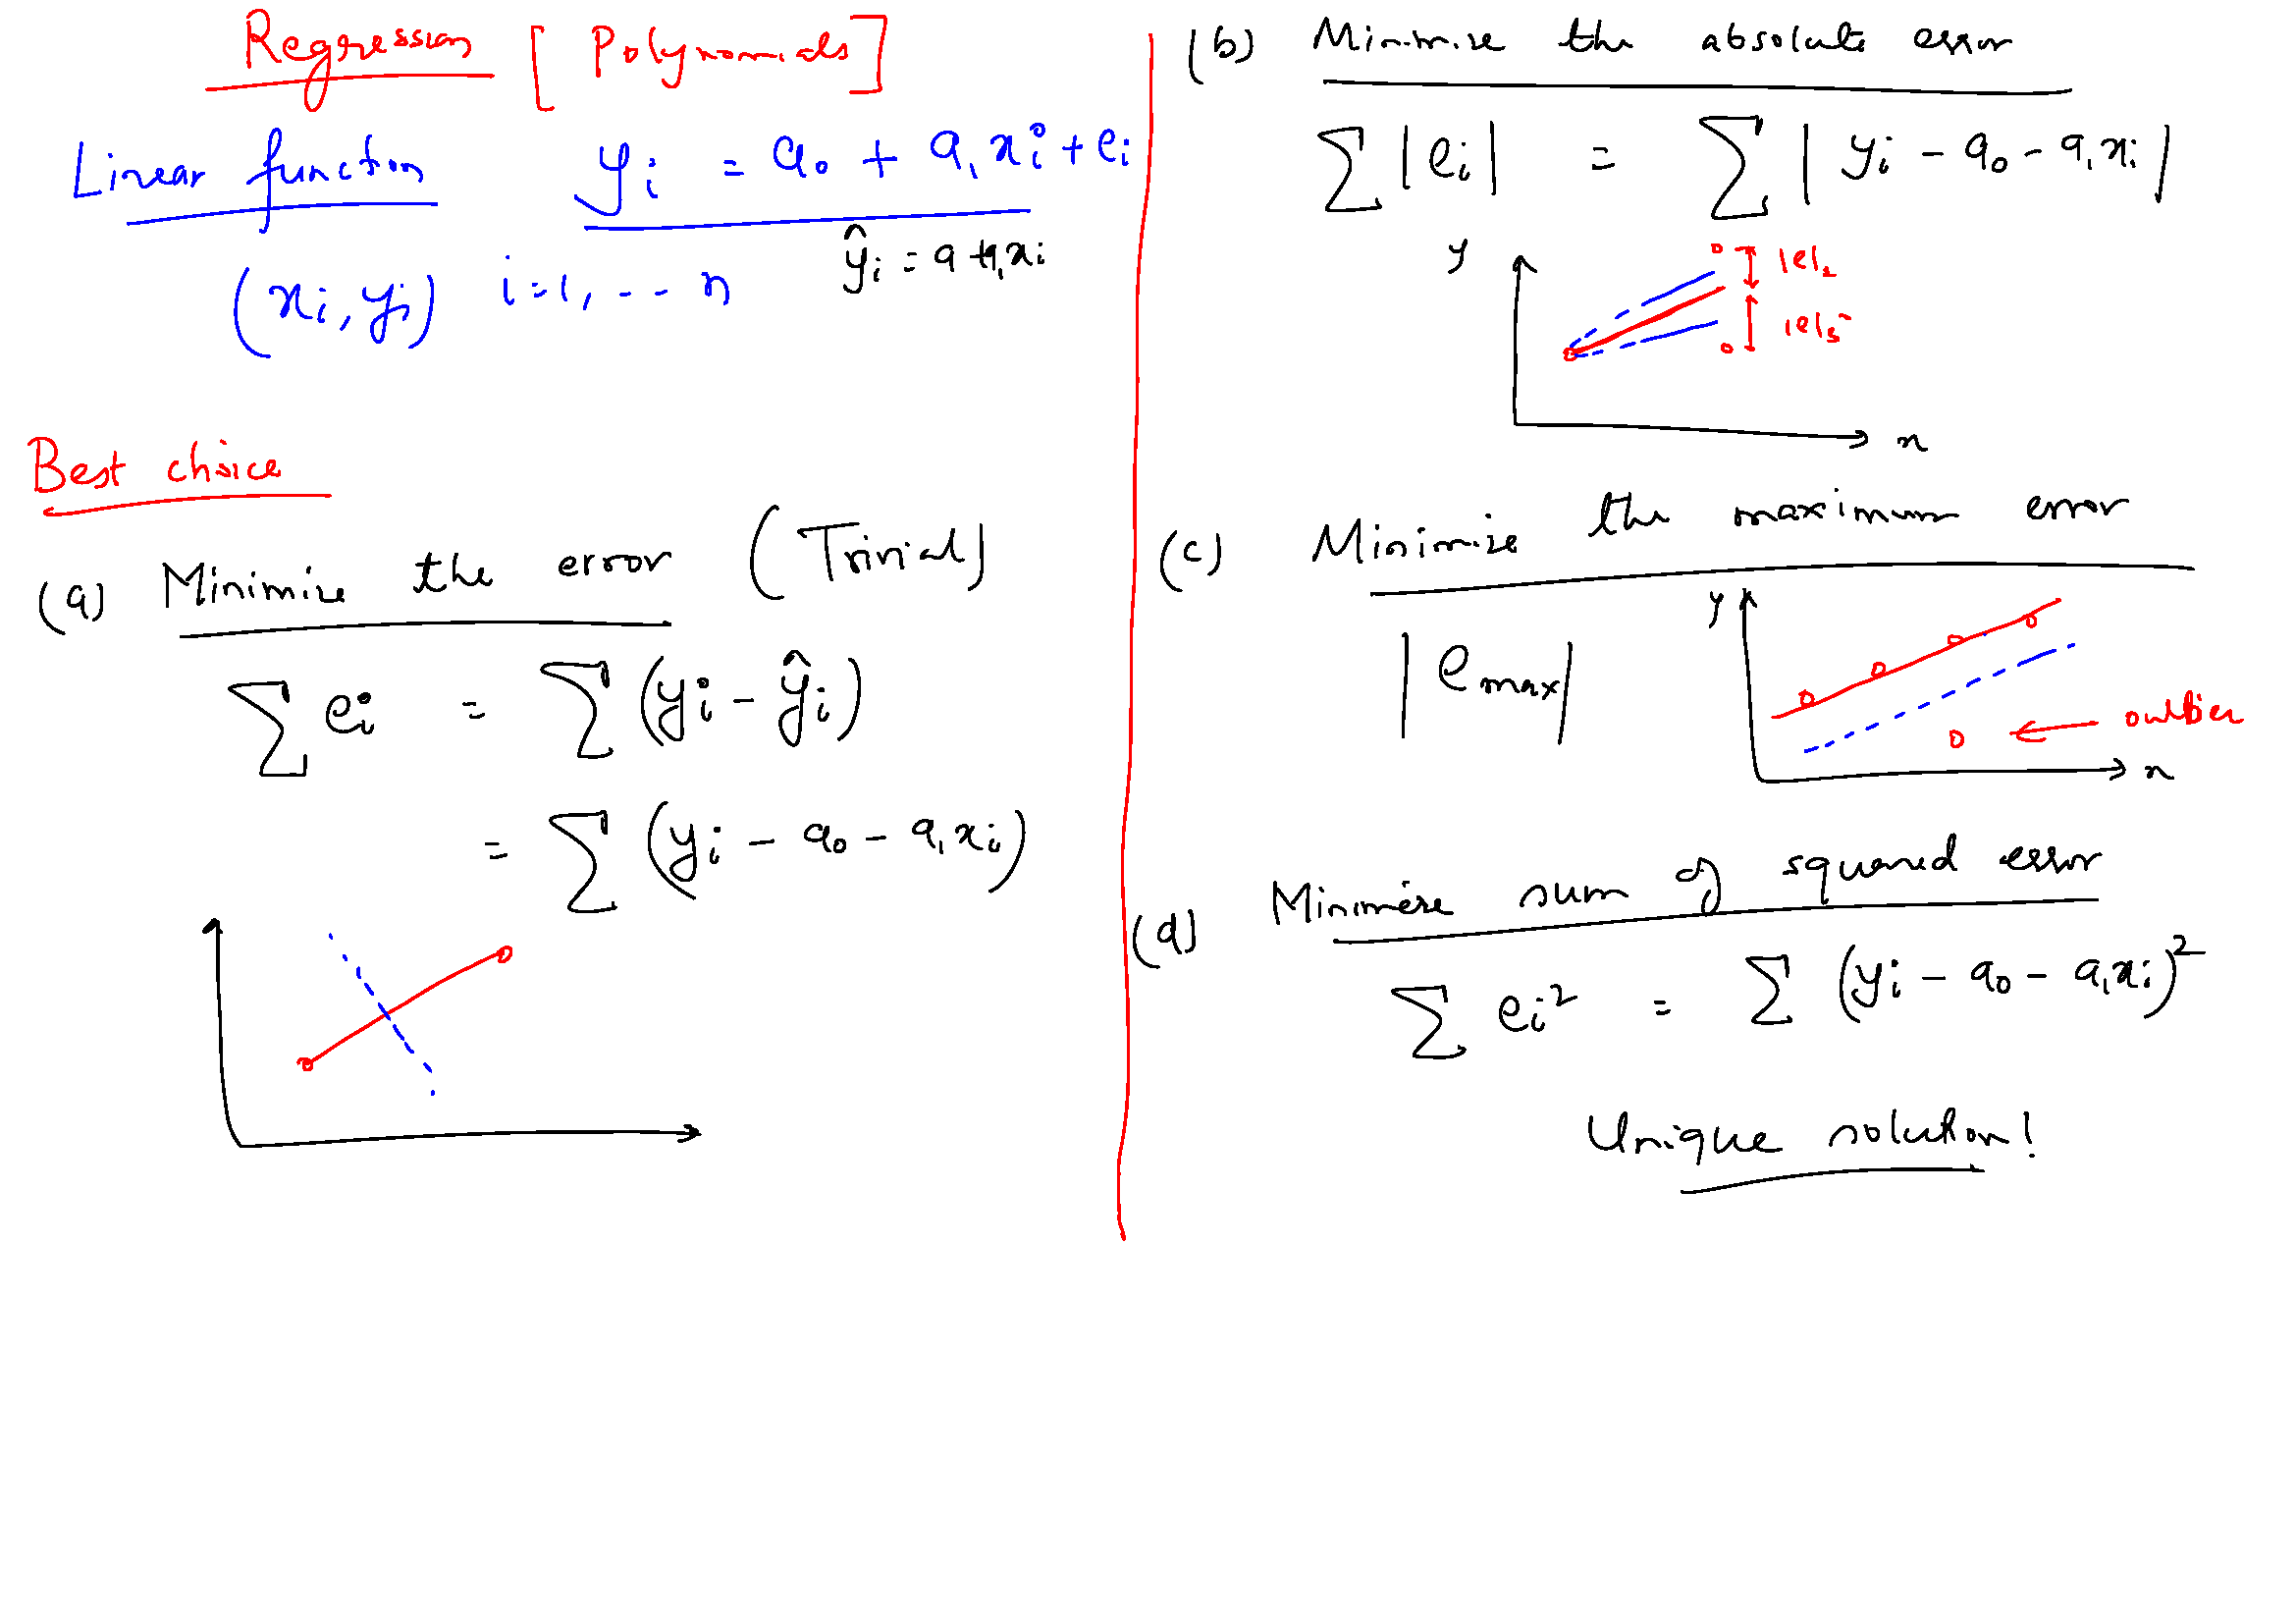 Regression [Polynomials]
Linear function yᵢ = a₀ + a₁xᵢ + eᵢ
ŷᵢ = a + a₁xᵢ
(xᵢ, yᵢ) i=1, -- n
Best choice
(a) Minimize the error (Trivial)
∑ eᵢ = ∑ (yᵢ - ŷᵢ)
= ∑ (yᵢ - a₀ - a₁xᵢ)
(b) Minimise the absolute error
∑ |eᵢ| = ∑ |yᵢ - a₀ - a₁xᵢ|
y
|e|₂
x
(c) Minimize the maximum error
|e max|
y
outlier
x
(d) Minimize sum of squared error
∑ eᵢ² = ∑ (yᵢ - a₀ - a₁xᵢ)²
Unique solution!